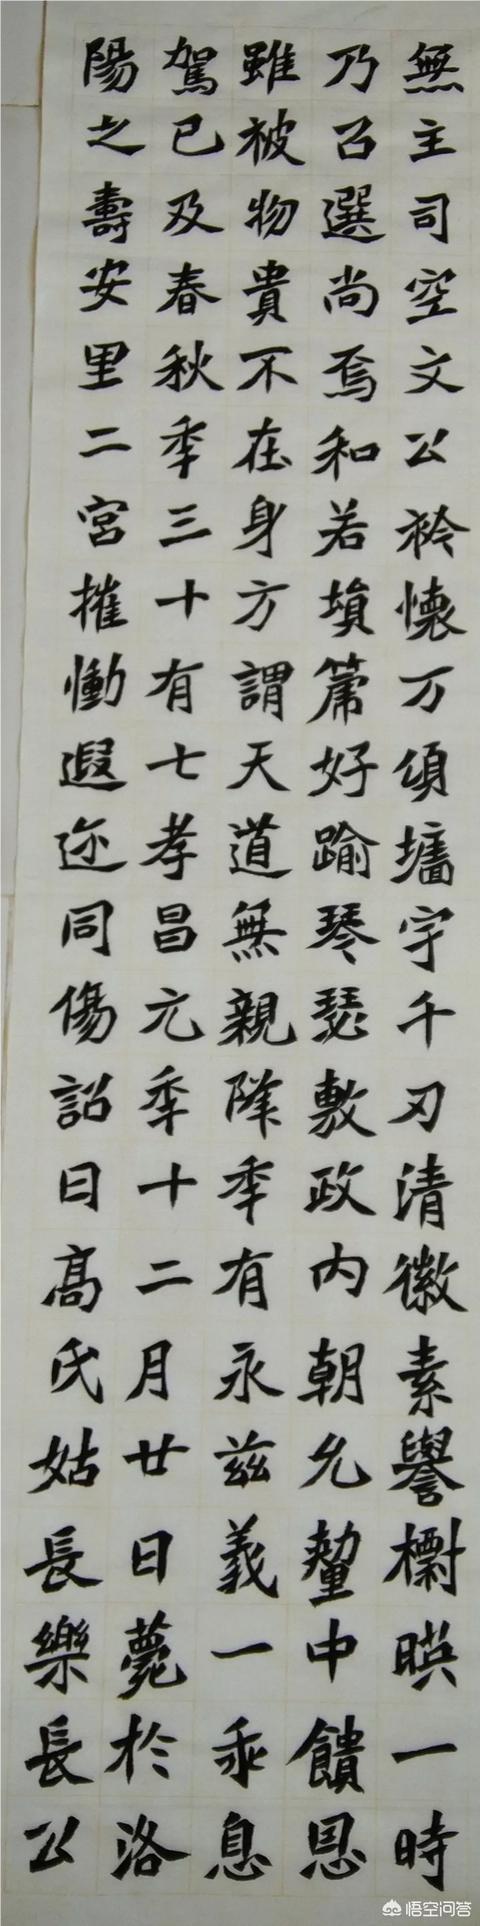 無主司空文公衿懷万頃墻宇千刃清徽素譽暎一時
乃召選尚焉和若塤篪好踰琴瑟敷政内朝允釐中饋恩
雖被物貴不在身方謂天道無親降秊有永兹義一乖息
駕已及春秋秊三十有七孝昌元秊十二月廿日薨於洛
陽之壽安里二宮摧慟遐迩同傷詔曰髙氏姑長樂長公
悟空问答